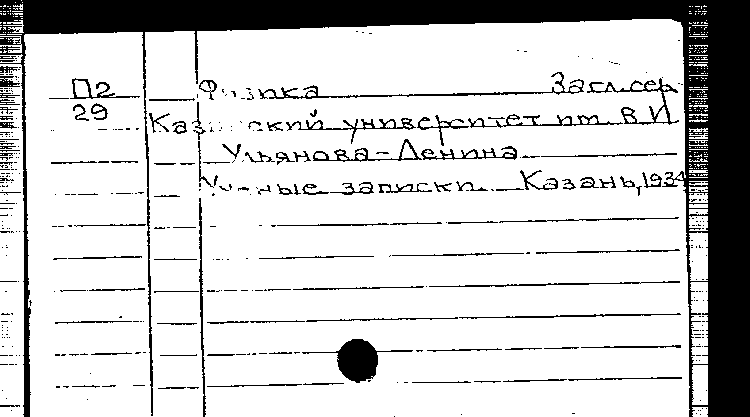 П2 Физика Загл.сер.
29 Казанский университет им. В.И.
Ульянова-Ленина
Ученые записки. Казань, 1934